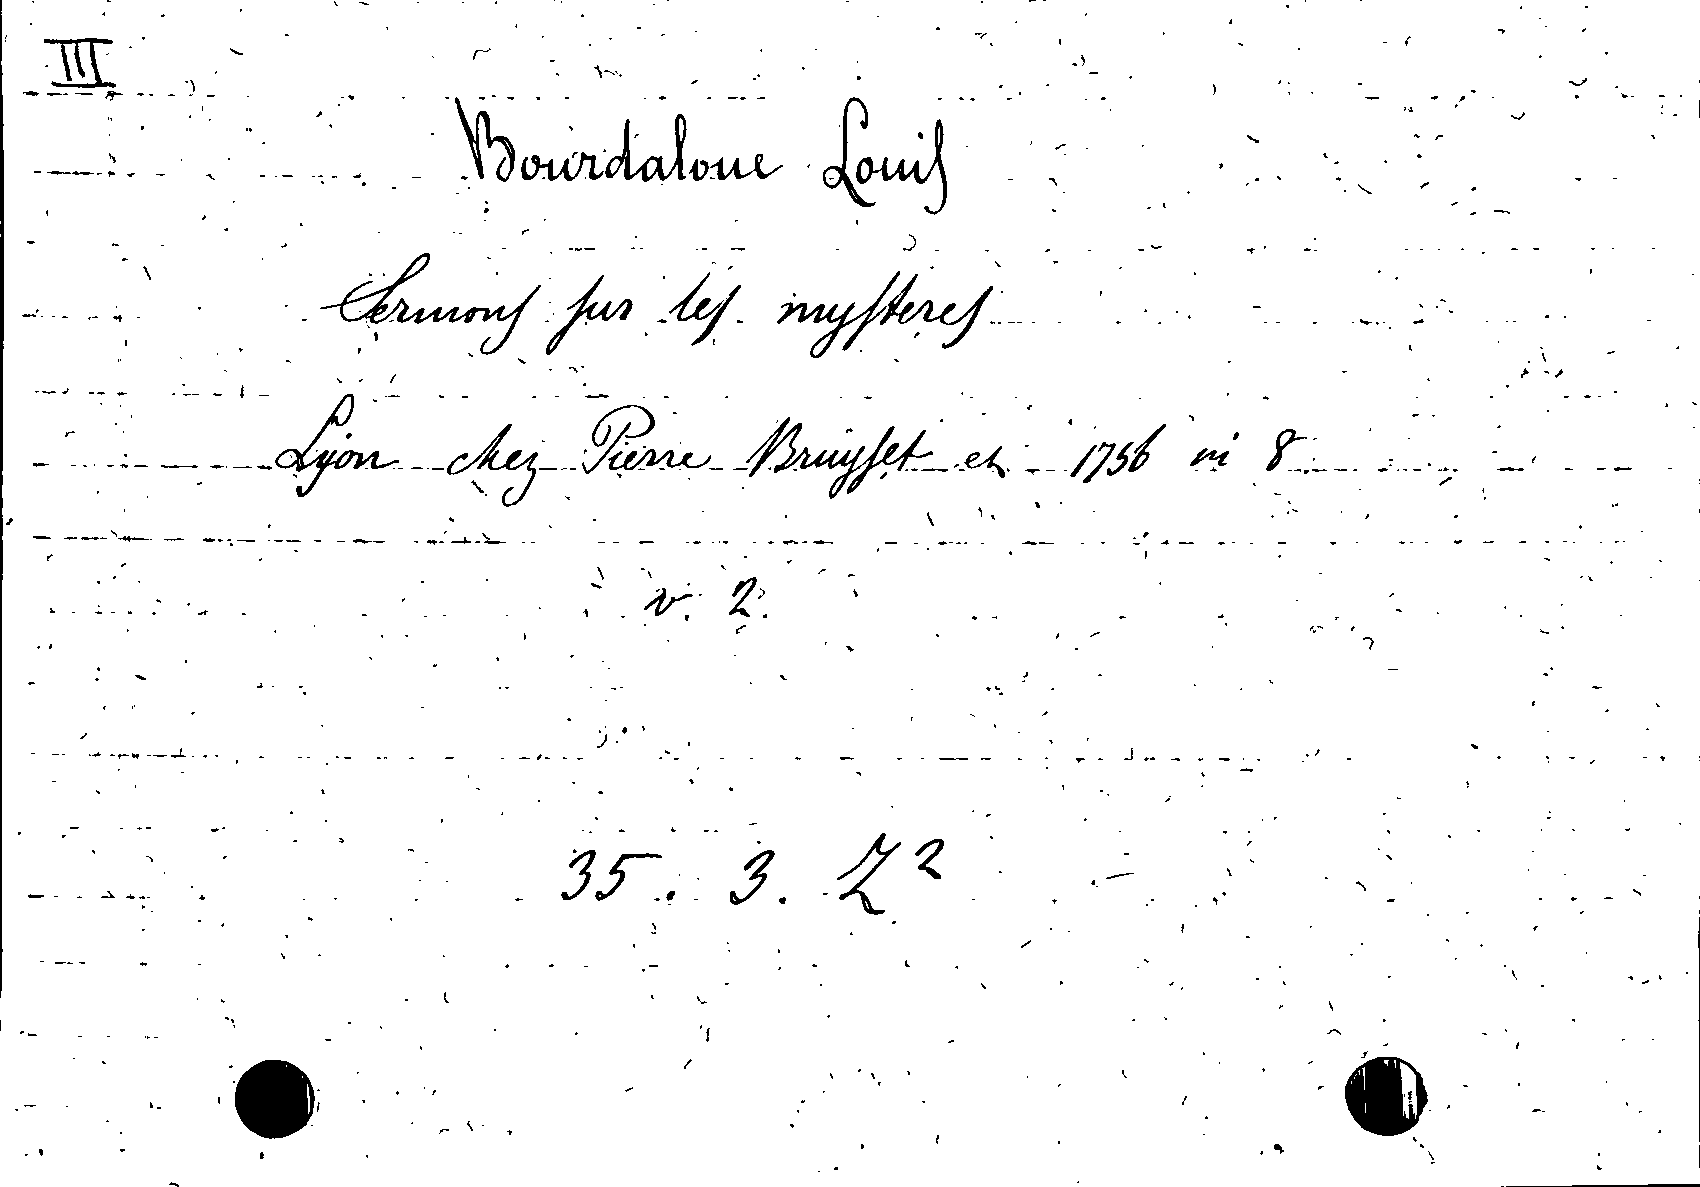 III
Bourdaloue Louis
Sermons sur les mysteres
Lyon chez Pierre Bruysset et 1756 in 8
v. 2.
35. 3. Z²